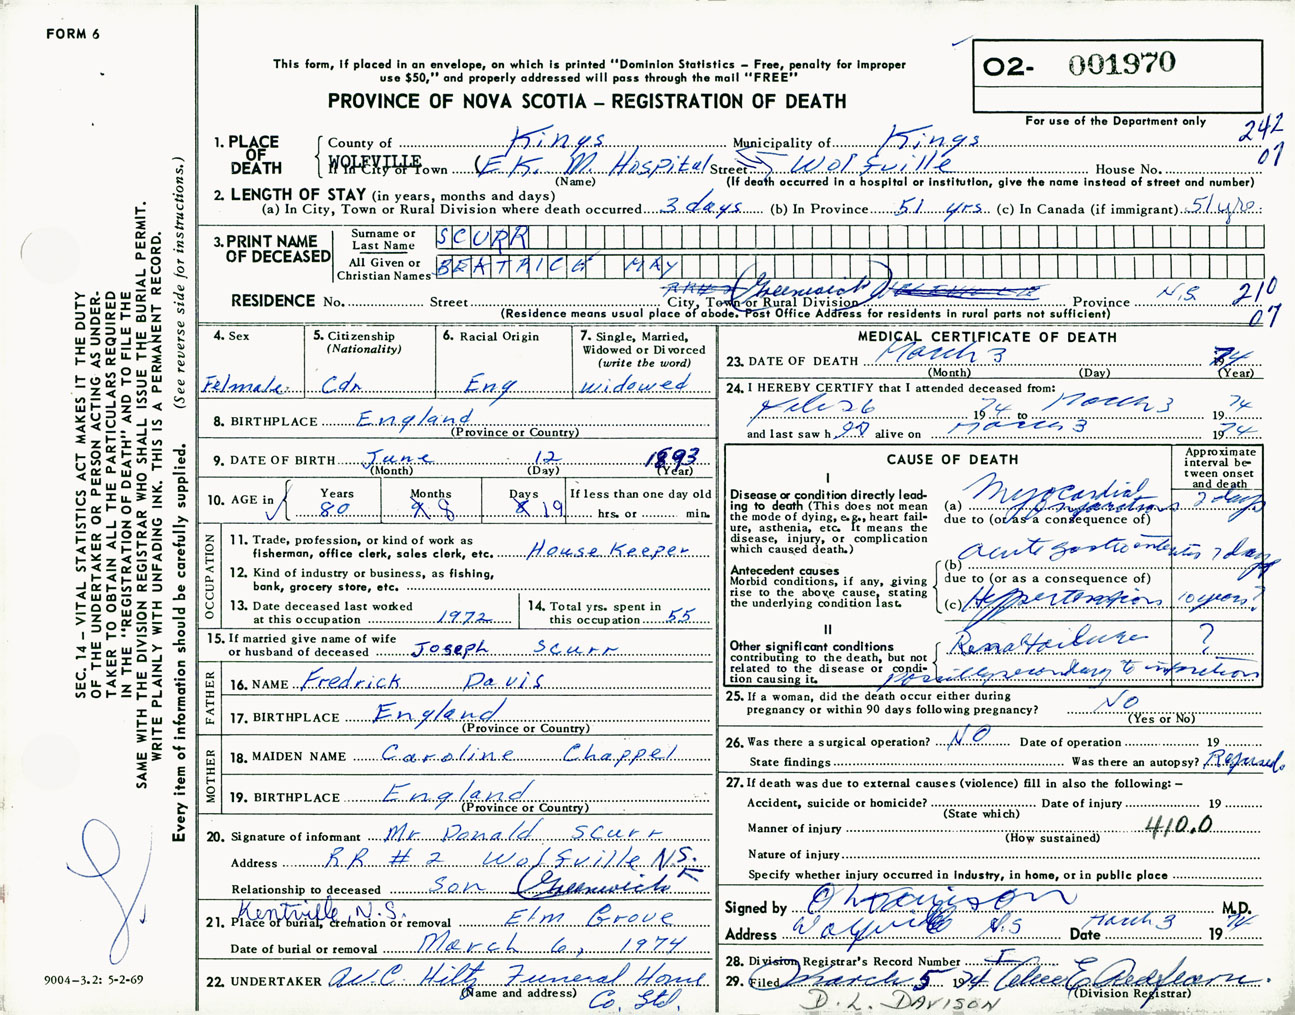 FORM 6
This form, if placed in an envelope, on which is printed "Dominion Statistics – Free, penalty for improper
use $50," and properly addressed will pass through the mail "FREE"
PROVINCE OF NOVA SCOTIA – REGISTRATION OF DEATH
O2- 001970
For use of the Department only
242
07
1. PLACE OF DEATH
County of Kings Municipality of Kings
WOLFVILLE
If in City or Town (E.K. M. Hospital Street Wolfville House No.
(Name) (If death occurred in a hospital or institution, give the name instead of street and number)
2. LENGTH OF STAY (in years, months and days)
(a) In City, Town or Rural Division where death occurred 3 days (b) In Province 51 yrs (c) In Canada (if immigrant) 51 yrs.
3. PRINT NAME OF DECEASED
Surname or Last Name SCURR
All Given or Christian Names BEATRICE MAY
RESIDENCE No. Street City, Town or Rural Division Greenwich Province N.S. 210
07
(Residence means usual place of abode. Post Office Address for residents in rural parts not sufficient)
4. Sex
Felmale
5. Citizenship
(Nationality)
Cdn
6. Racial Origin
Eng
7. Single, Married,
Widowed or Divorced
(write the word)
widowed
8. BIRTHPLACE England
(Province or Country)
9. DATE OF BIRTH June 12 1893
(Month) (Day) (Year)
10. AGE in
Years Months Days If less than one day old
80 8 19 hrs. or min.
OCCUPATION
11. Trade, profession, or kind of work as
fisherman, office clerk, sales clerk, etc. House Keeper
12. Kind of industry or business, as fishing,
bank, grocery store, etc.
13. Date deceased last worked
at this occupation 1972
14. Total yrs. spent in
this occupation 55
15. If married give name of wife
or husband of deceased Joseph Scurr
FATHER
16. NAME Fredrick Davis
17. BIRTHPLACE England
(Province or Country)
MOTHER
18. MAIDEN NAME Caroline Chappel
19. BIRTHPLACE England
(Province or Country)
20. Signature of informant Mr Donald Scurr
Address RR # 2 Wolfville N.S.
Relationship to deceased Son Greenwich
Kentville, N.S.
21. Place of burial, cremation or removal Elm Grove
Date of burial or removal March 6, 1974
22. UNDERTAKER W.C. Hiltz Funeral Home
(Name and address) Co. Ltd.
MEDICAL CERTIFICATE OF DEATH
23. DATE OF DEATH March 3 1974
(Month) (Day) (Year)
24. I HEREBY CERTIFY that I attended deceased from:
Feb 26 1974 to March 3 1974
and last saw h er alive on March 3 1974
CAUSE OF DEATH
Approximate
interval be-
tween onset
and death
I
Disease or condition directly lead-
ing to death (This does not mean
the mode of dying, e.g., heart fail-
ure, asthenia, etc. It means the
disease, injury, or complication
which caused death.)
(a) Myocardial Infarction 2 days
due to (or as a consequence of)
Antecedent causes
Morbid conditions, if any, giving
rise to the above cause, stating
the underlying condition last.
(b) acute gastroenteritis 7 days
due to (or as a consequence of)
(c) Hypertension 10 years?
II
Other significant conditions
contributing to the death, but not
related to the disease or condi-
tion causing it.
Renal failure ?
Possibly secondary to infarction
25. If a woman, did the death occur either during
pregnancy or within 90 days following pregnancy? NO
(Yes or No)
26. Was there a surgical operation? NO Date of operation 19
State findings Was there an autopsy? Refused.
27. If death was due to external causes (violence) fill in also the following: –
Accident, suicide or homicide? Date of injury 19
(State which)
Manner of injury 410.0
(How sustained)
Nature of injury
Specify whether injury occurred in Industry, in home, or in public place
Signed by M.D.
Address Wolfville N.S Date March 3 1974
28. Division Registrar's Record Number
29. Filed March 5 1974
(Division Registrar)
D. L. DAVISON
SEC. 14 – VITAL STATISTICS ACT MAKES IT THE DUTY
OF THE UNDERTAKER OR PERSON ACTING AS UNDER-
TAKER TO OBTAIN ALL THE PARTICULARS REQUIRED
IN THE "REGISTRATION OF DEATH" AND TO FILE THE
SAME WITH THE DIVISION REGISTRAR WHO SHALL ISSUE THE BURIAL PERMIT.
WRITE PLAINLY WITH UNFADING INK. THIS IS A PERMANENT RECORD.
Every item of information should be carefully supplied. (See reverse side for instructions.)
9004–3.2: 5-2-69